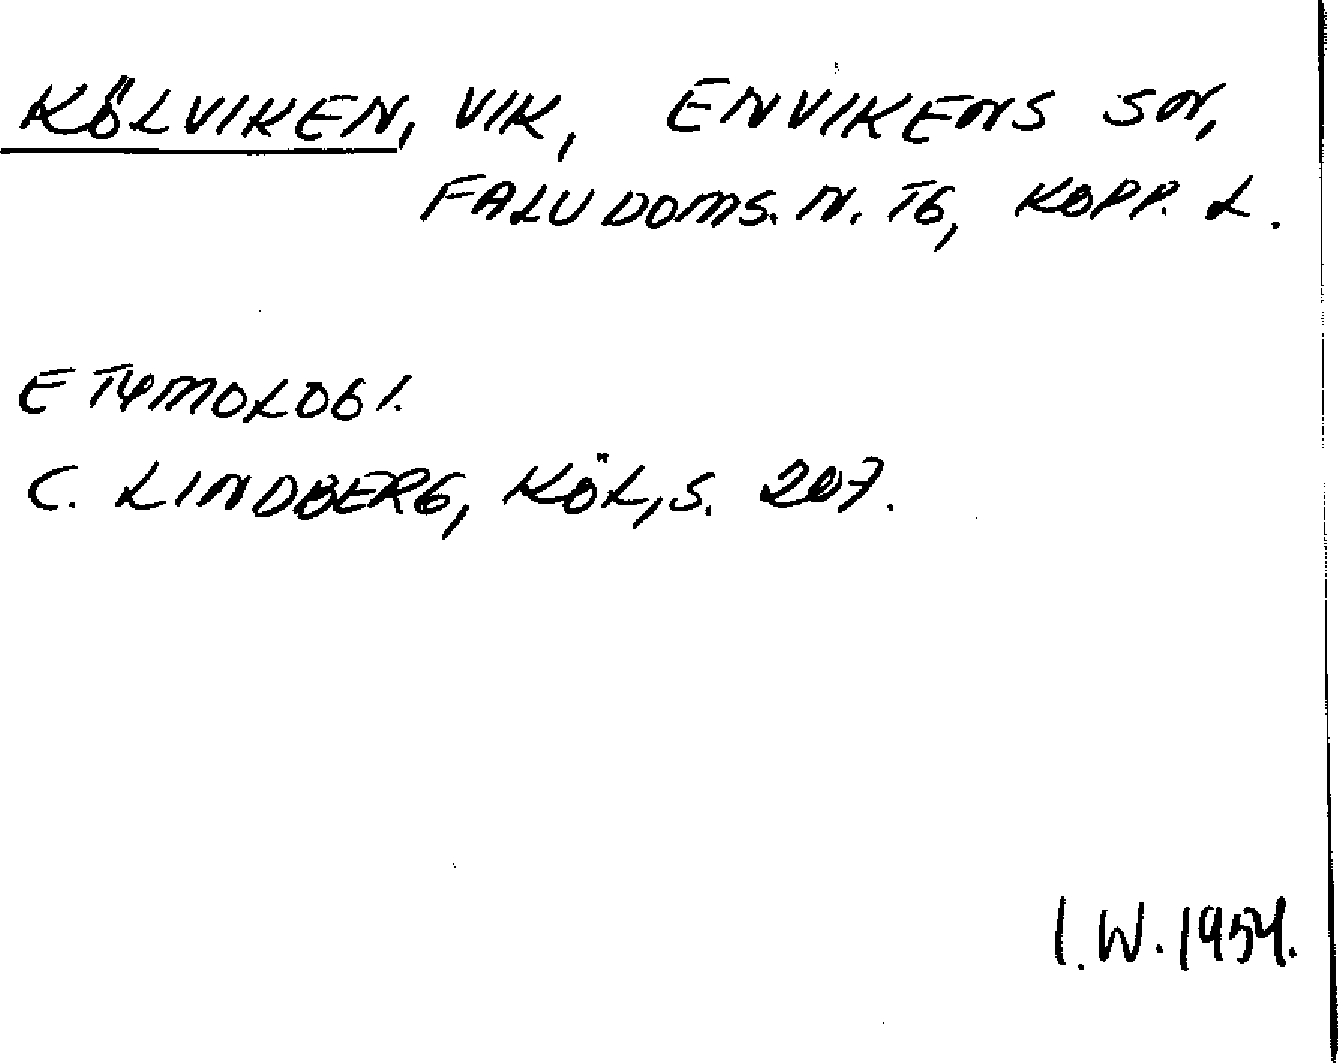 KÖLVIKEN, VIK, ENVIKENS SN,
FALU DOMS. N. TG, KOPP. L.
ETYMOLOGI.
C. LINDBERG, KÖL, S. 207.
I.W. 1954.